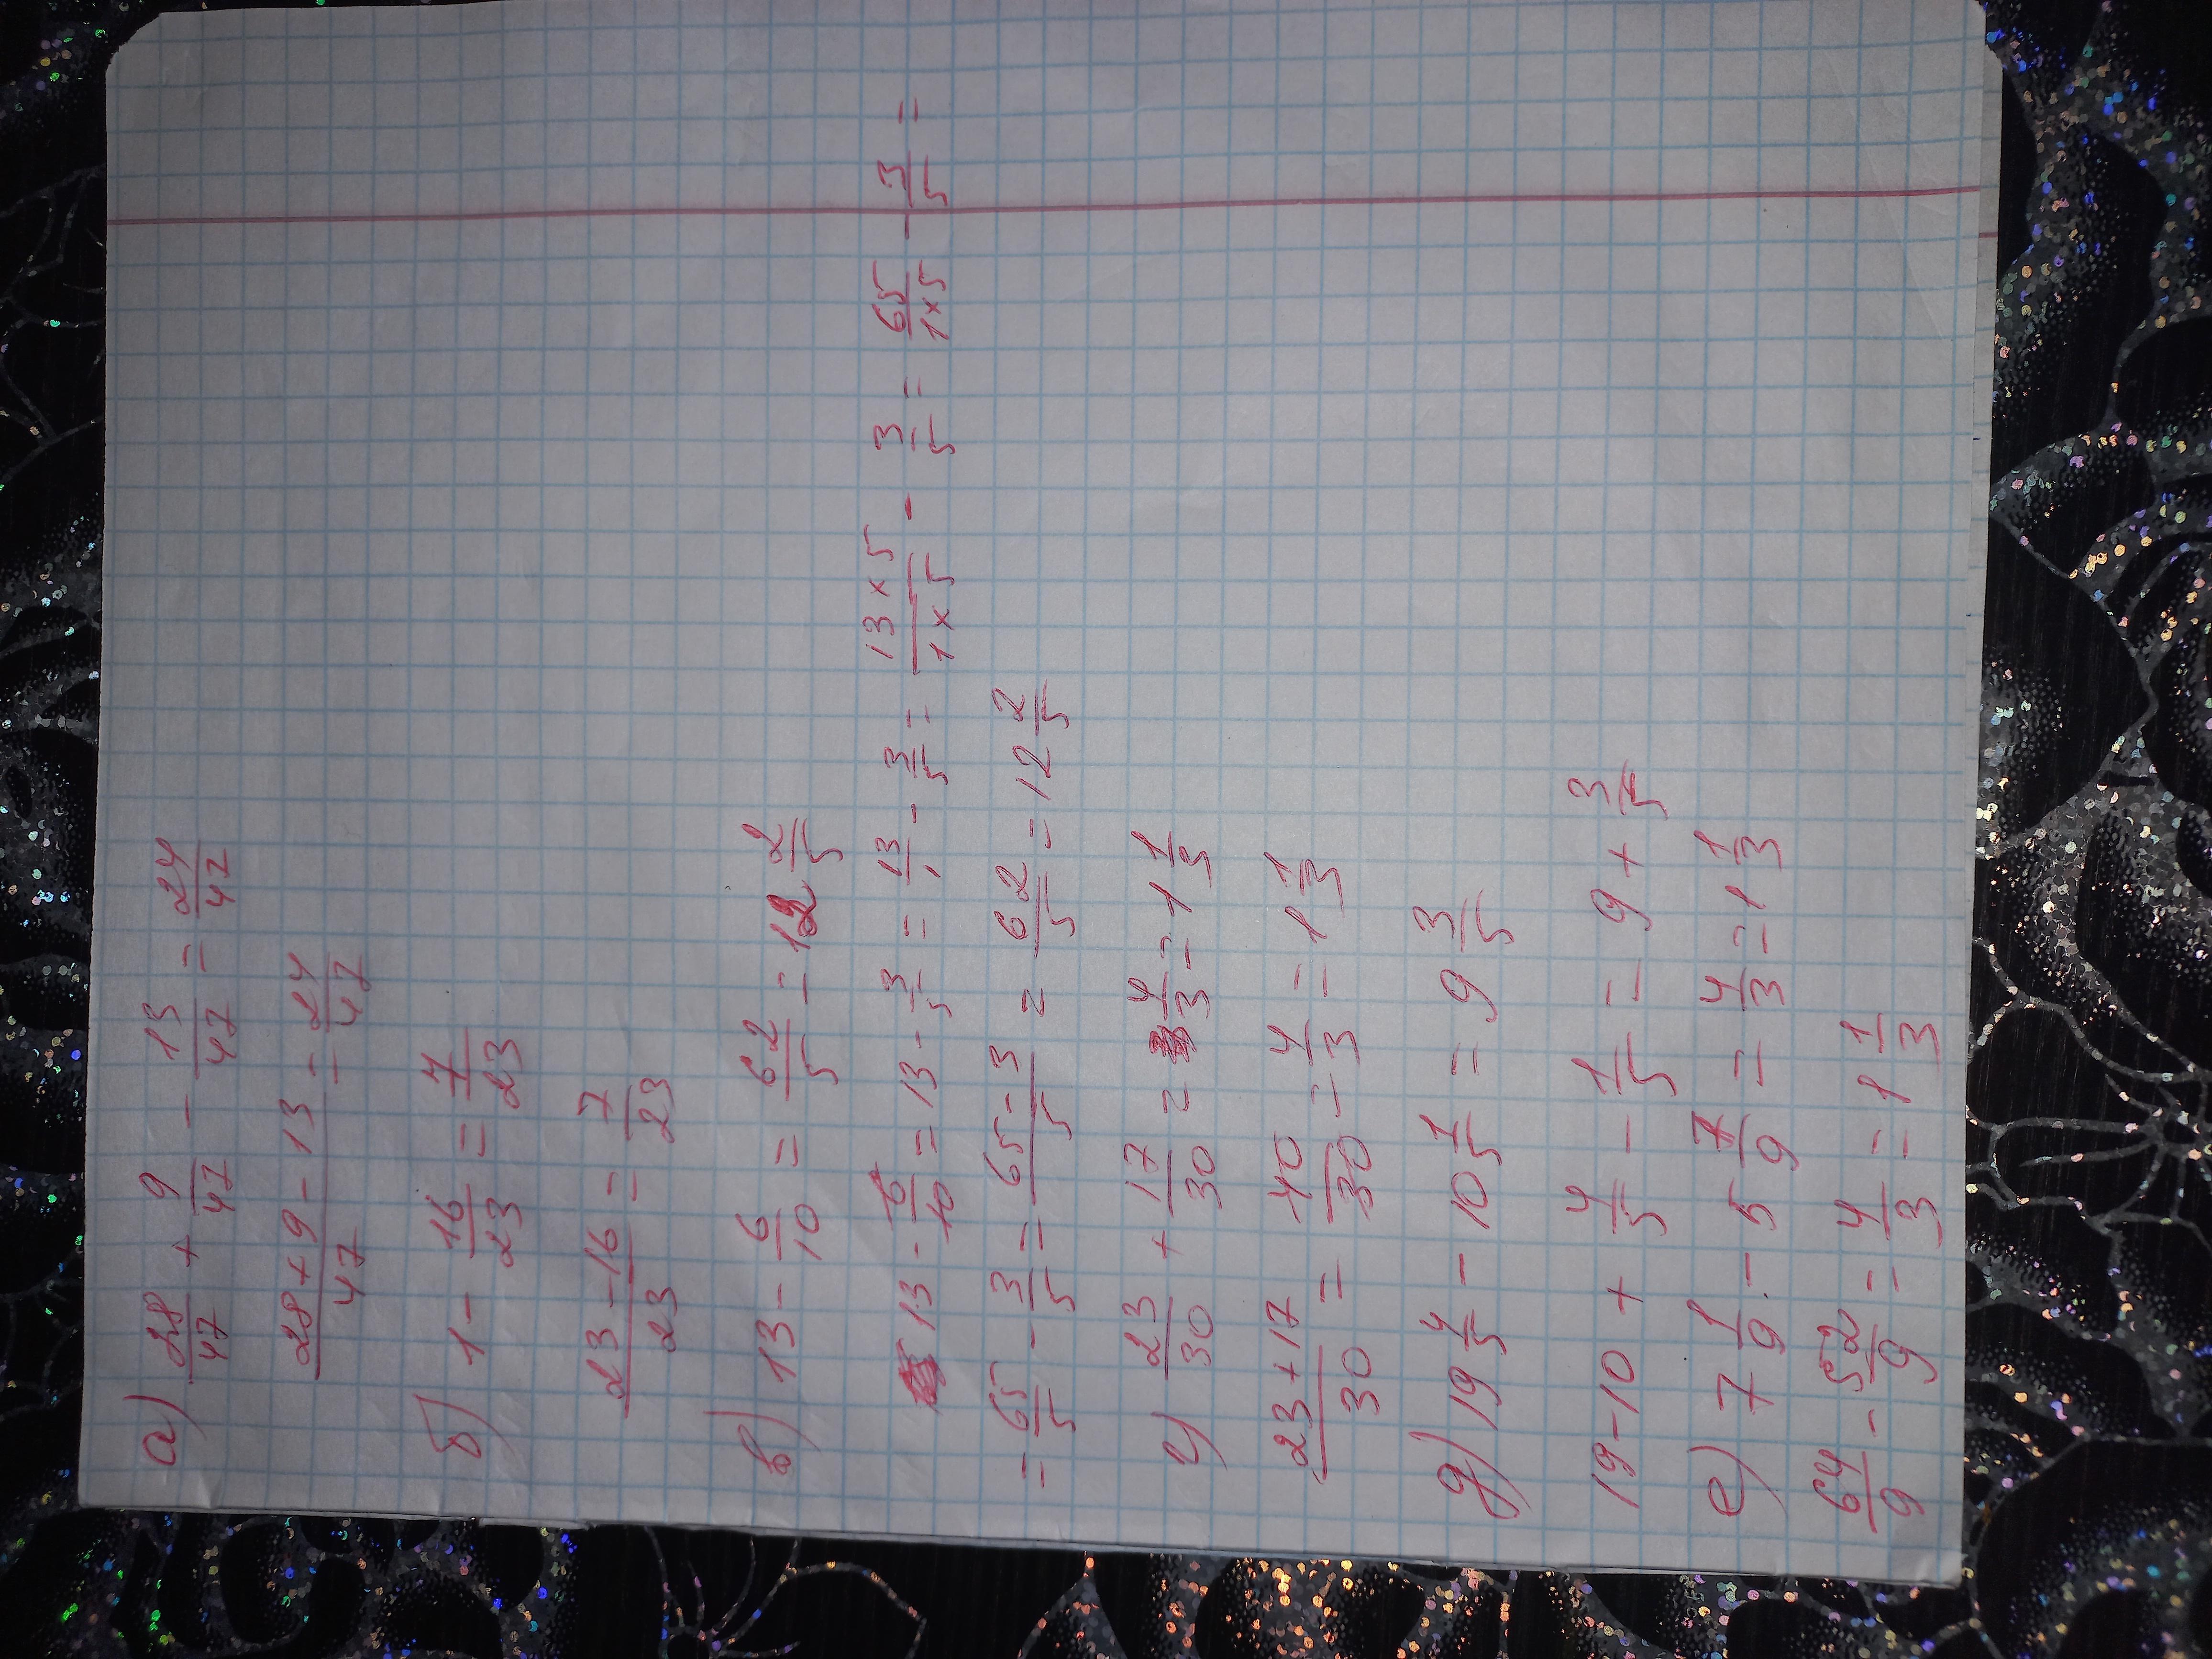 а) 28/47 + 9/47 - 13/47 = 24/47
28+9-13/47 = 24/47
б) 1 - 16/23 = 7/23
23-16/23 = 7/23
в) 13 - 6/10 = 62/5 = 12 2/5
13 - 6/10 = 13 - 3/5 = 13/1 - 3/5 = 13×5/1×5 - 3/5 = 65/1×5 - 3/5 =
= 65/5 - 3/5 = 65-3/5 = 62/5 = 12 2/5
г) 23/30 + 17/30 = 4/3 = 1 1/3
23+17/30 = 40/30 = 4/3 = 1 1/3
д) 19 4/5 - 10 1/5 = 9 3/5
19-10 + 4/5 - 1/5 = 9 + 3/5
е) 7 1/9 - 5 7/9 = 4/3 = 1 1/3
64/9 - 52/9 = 4/3 = 1 1/3